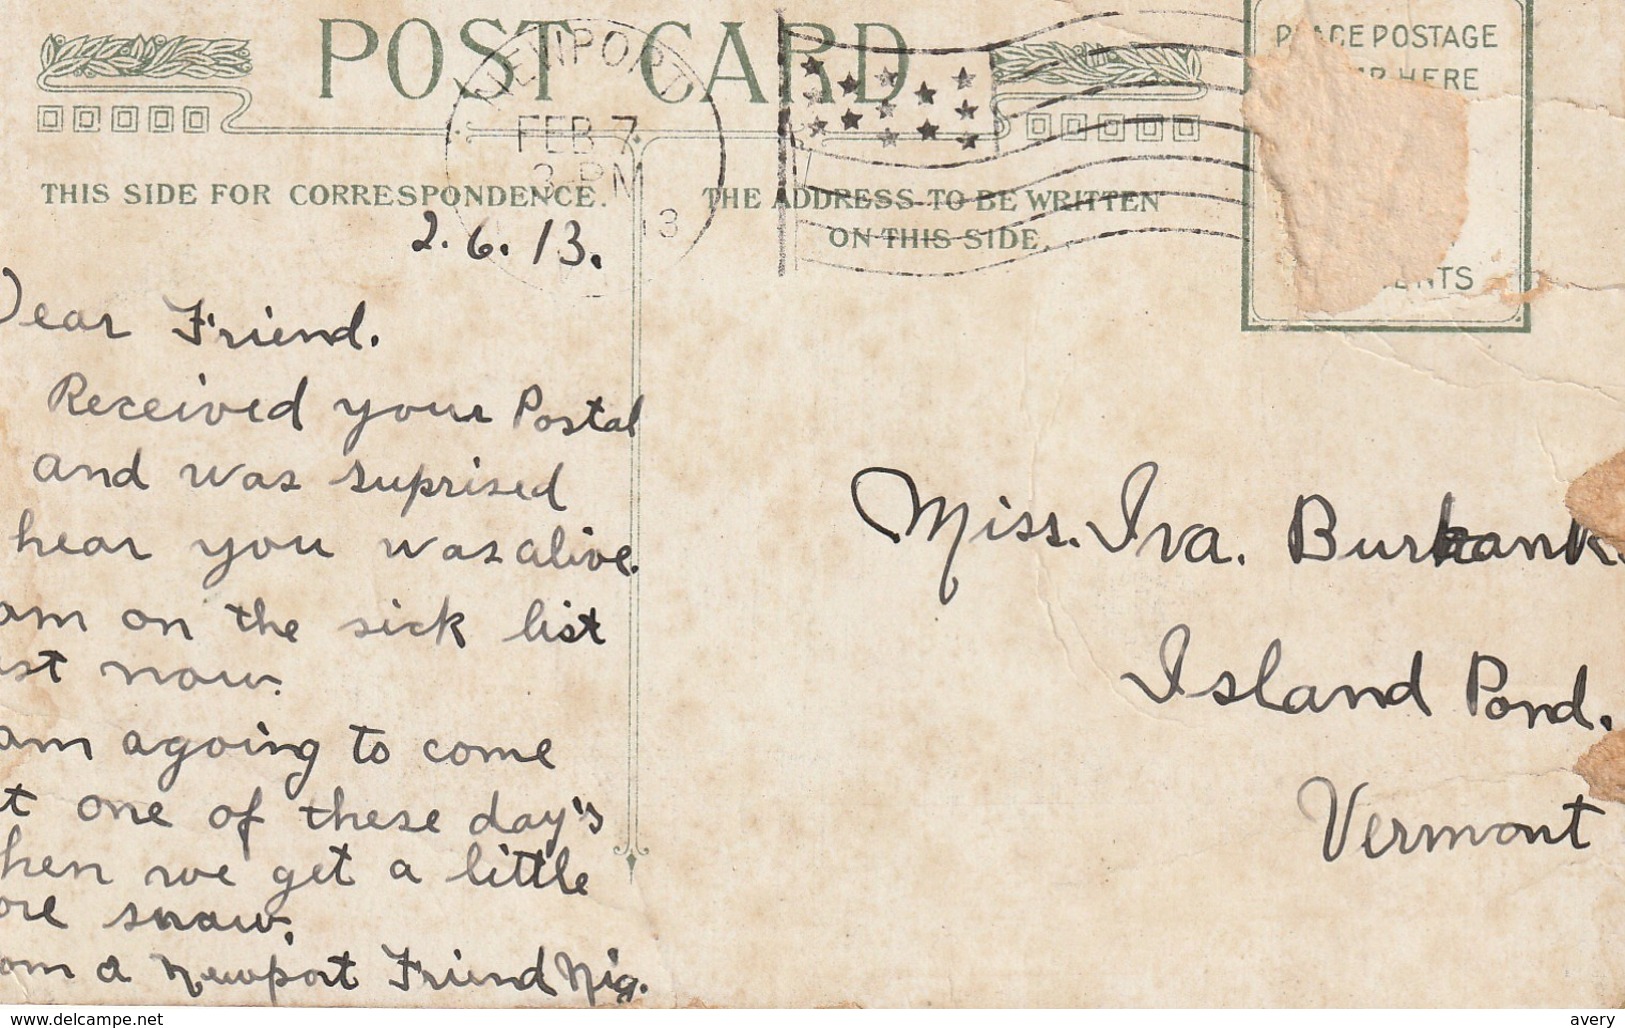 POST CARD
NEWPORT
FEB 7
3-PM
13
PLACE POSTAGE
HERE
THIS SIDE FOR CORRESPONDENCE.
THE ADDRESS TO BE WRITTEN
ON THIS SIDE.
2.6.13.
Dear Friend.
Received your Postal
and was suprised
hear you was alive.
am on the sick list
ust now.
am agoing to come
t one of these day's
hen we get a little
ore snow.
om a Newport Friend Nig.
Miss. Iva. Burbank.
Island Pond.
Vermont
www.delcampe.net
avery